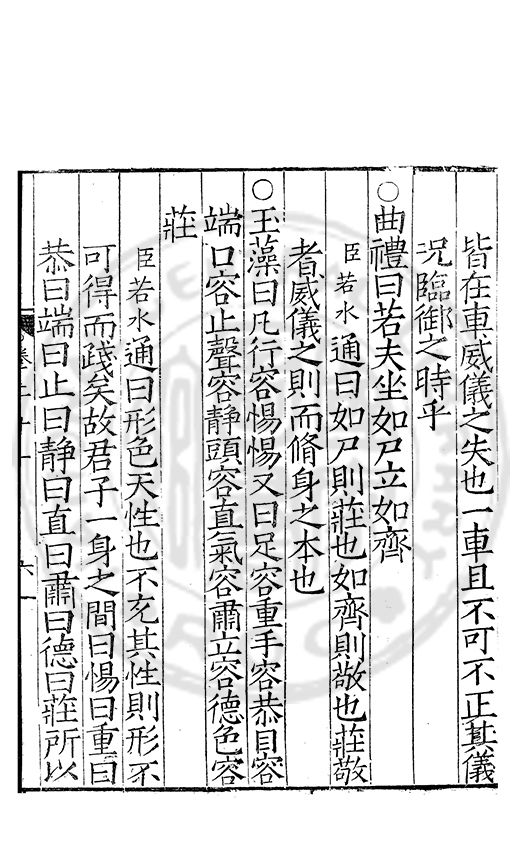 皆在車威儀之失也一車且不可不正其儀
况臨御之時乎
○曲禮曰若夫坐如尸立如齊
臣若水通曰如尸則莊也如齊則敬也莊敬
者威儀之則而脩身之本也
○玉藻曰凡行容愓愓又曰足容重手容恭目容
端口容止聲容静頭容直氣容肅立容德色容
莊
臣若水通曰形色天性也不充其性則形不
可得而踐矣故君子一身之間曰愓曰重曰
恭曰端曰止曰静曰直曰肅曰德曰莊所以